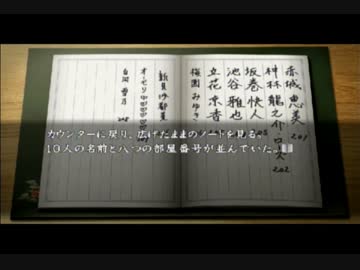 赤城 恵美 201
神林 龍之介・ローズ 202
坂巻 快人
池谷 雅也
立花 京香
桜園 みゆき
新見 沙都美
カウンターに戻り、広げたままのノートを見る。
10人の名前と八つの部屋番号が並んでいた。